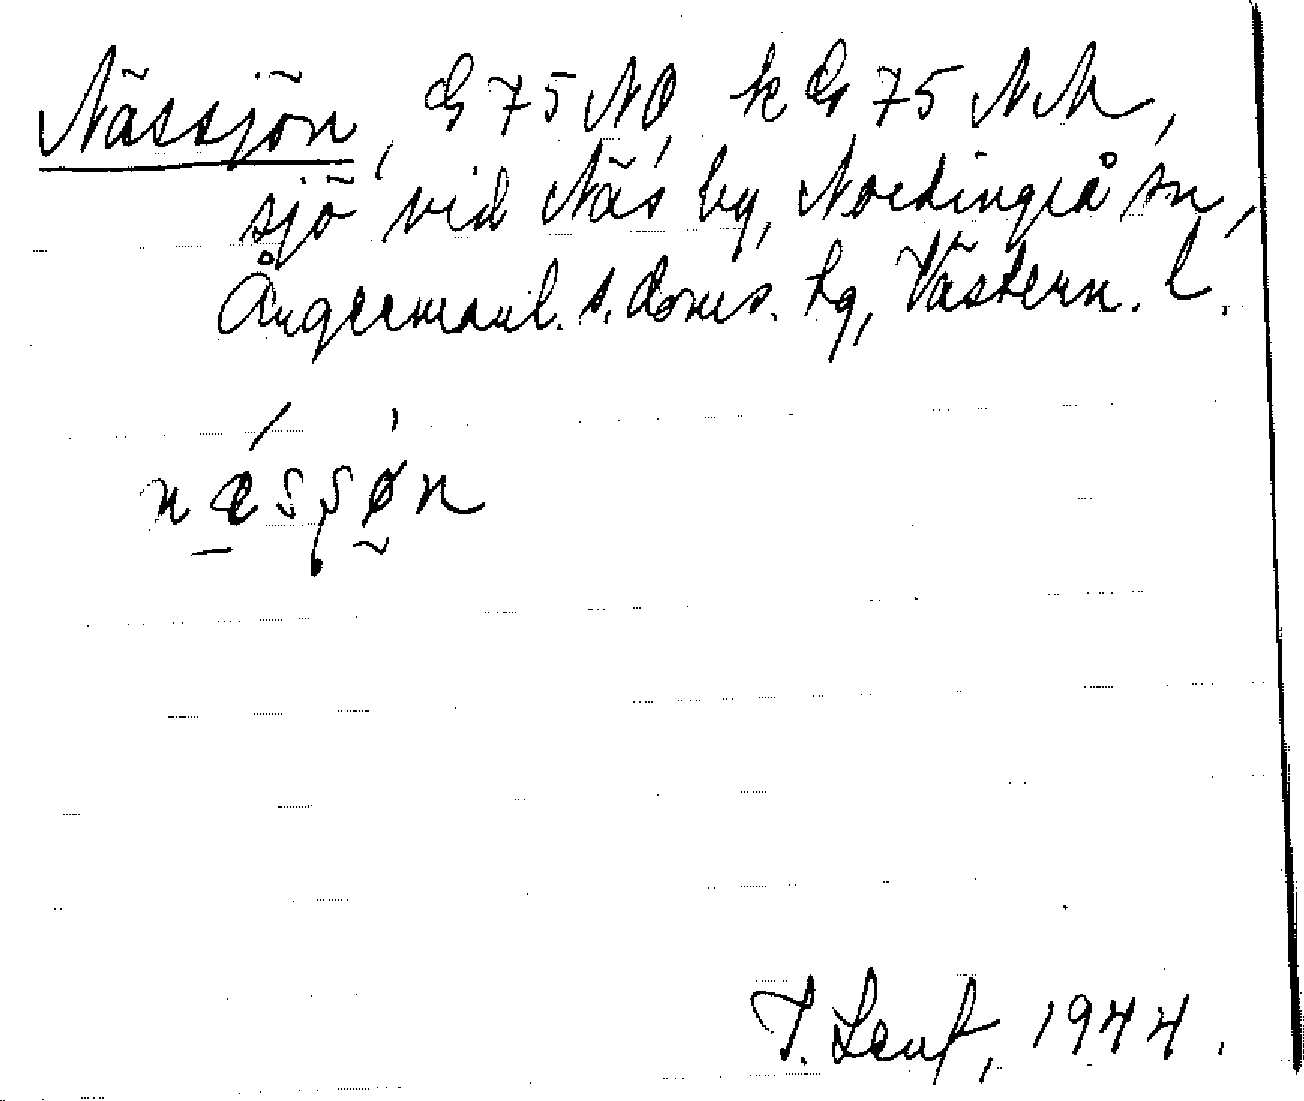 Nässjön, G 75 NO, k G 75 NM,
sjö vid Näs by, Nordingrå sn,
Ångermanl. s. doms. tg, Västern. l.
næsʂøn
T. Leuf, 1944.